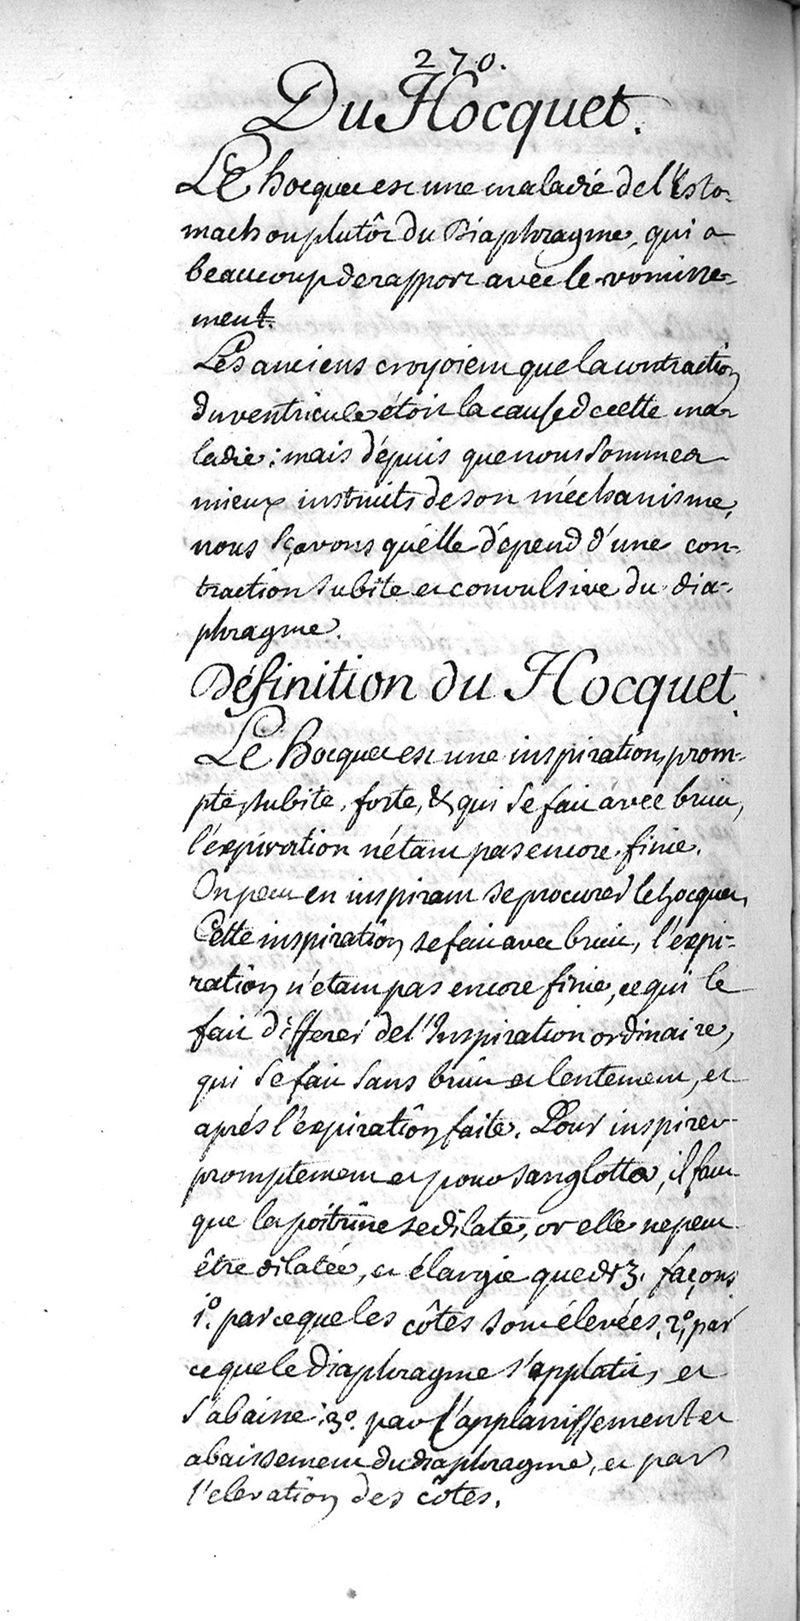 270.
Du Hocquet.
Le hocquet est une maladie de l'Esto-
mach ou plutôt du Diaphragme, qui a
beaucoup de rapport avec le vomisse-
ment.
Les anciens croyoient que la contraction
du ventricule étoit la cause de cette ma-
ladie: mais dépuis que nous sommes
mieux instruits de son méchanisme,
nous sçavons qu'élle dépend d'une con-
traction subite et convulsive du dia-
phragme.
Définition du Hocquet.
Le Hocquet est une inspiration prom-
pte, subite, forte, & qui se fait avec bruit,
l'éxpiration n'étant pas encore finie.
On peut en inspirant se procurer le hocquet,
Cette inspiration se fait avec bruit, l'éxpi-
ration n'étant pas encore finie, ce qui le
fait différer de l'Inspiration ordinaire,
qui se fait sans bruit et lentement, et
aprés l'éxpiration faite. Pour inspirer
promptement et pour sanglotter, il faut
que la poitrine se dilate, or elle ne peut
être dilatée, et élargie que de 3. façons
1.º parceque les côtes sont élevées, 2.º par
ce que le diaphragme s'applatit, et
s'abaisse: 3.º par l'applanissement et
abaissement du diaphragme, et par
l'elevation des côtes.